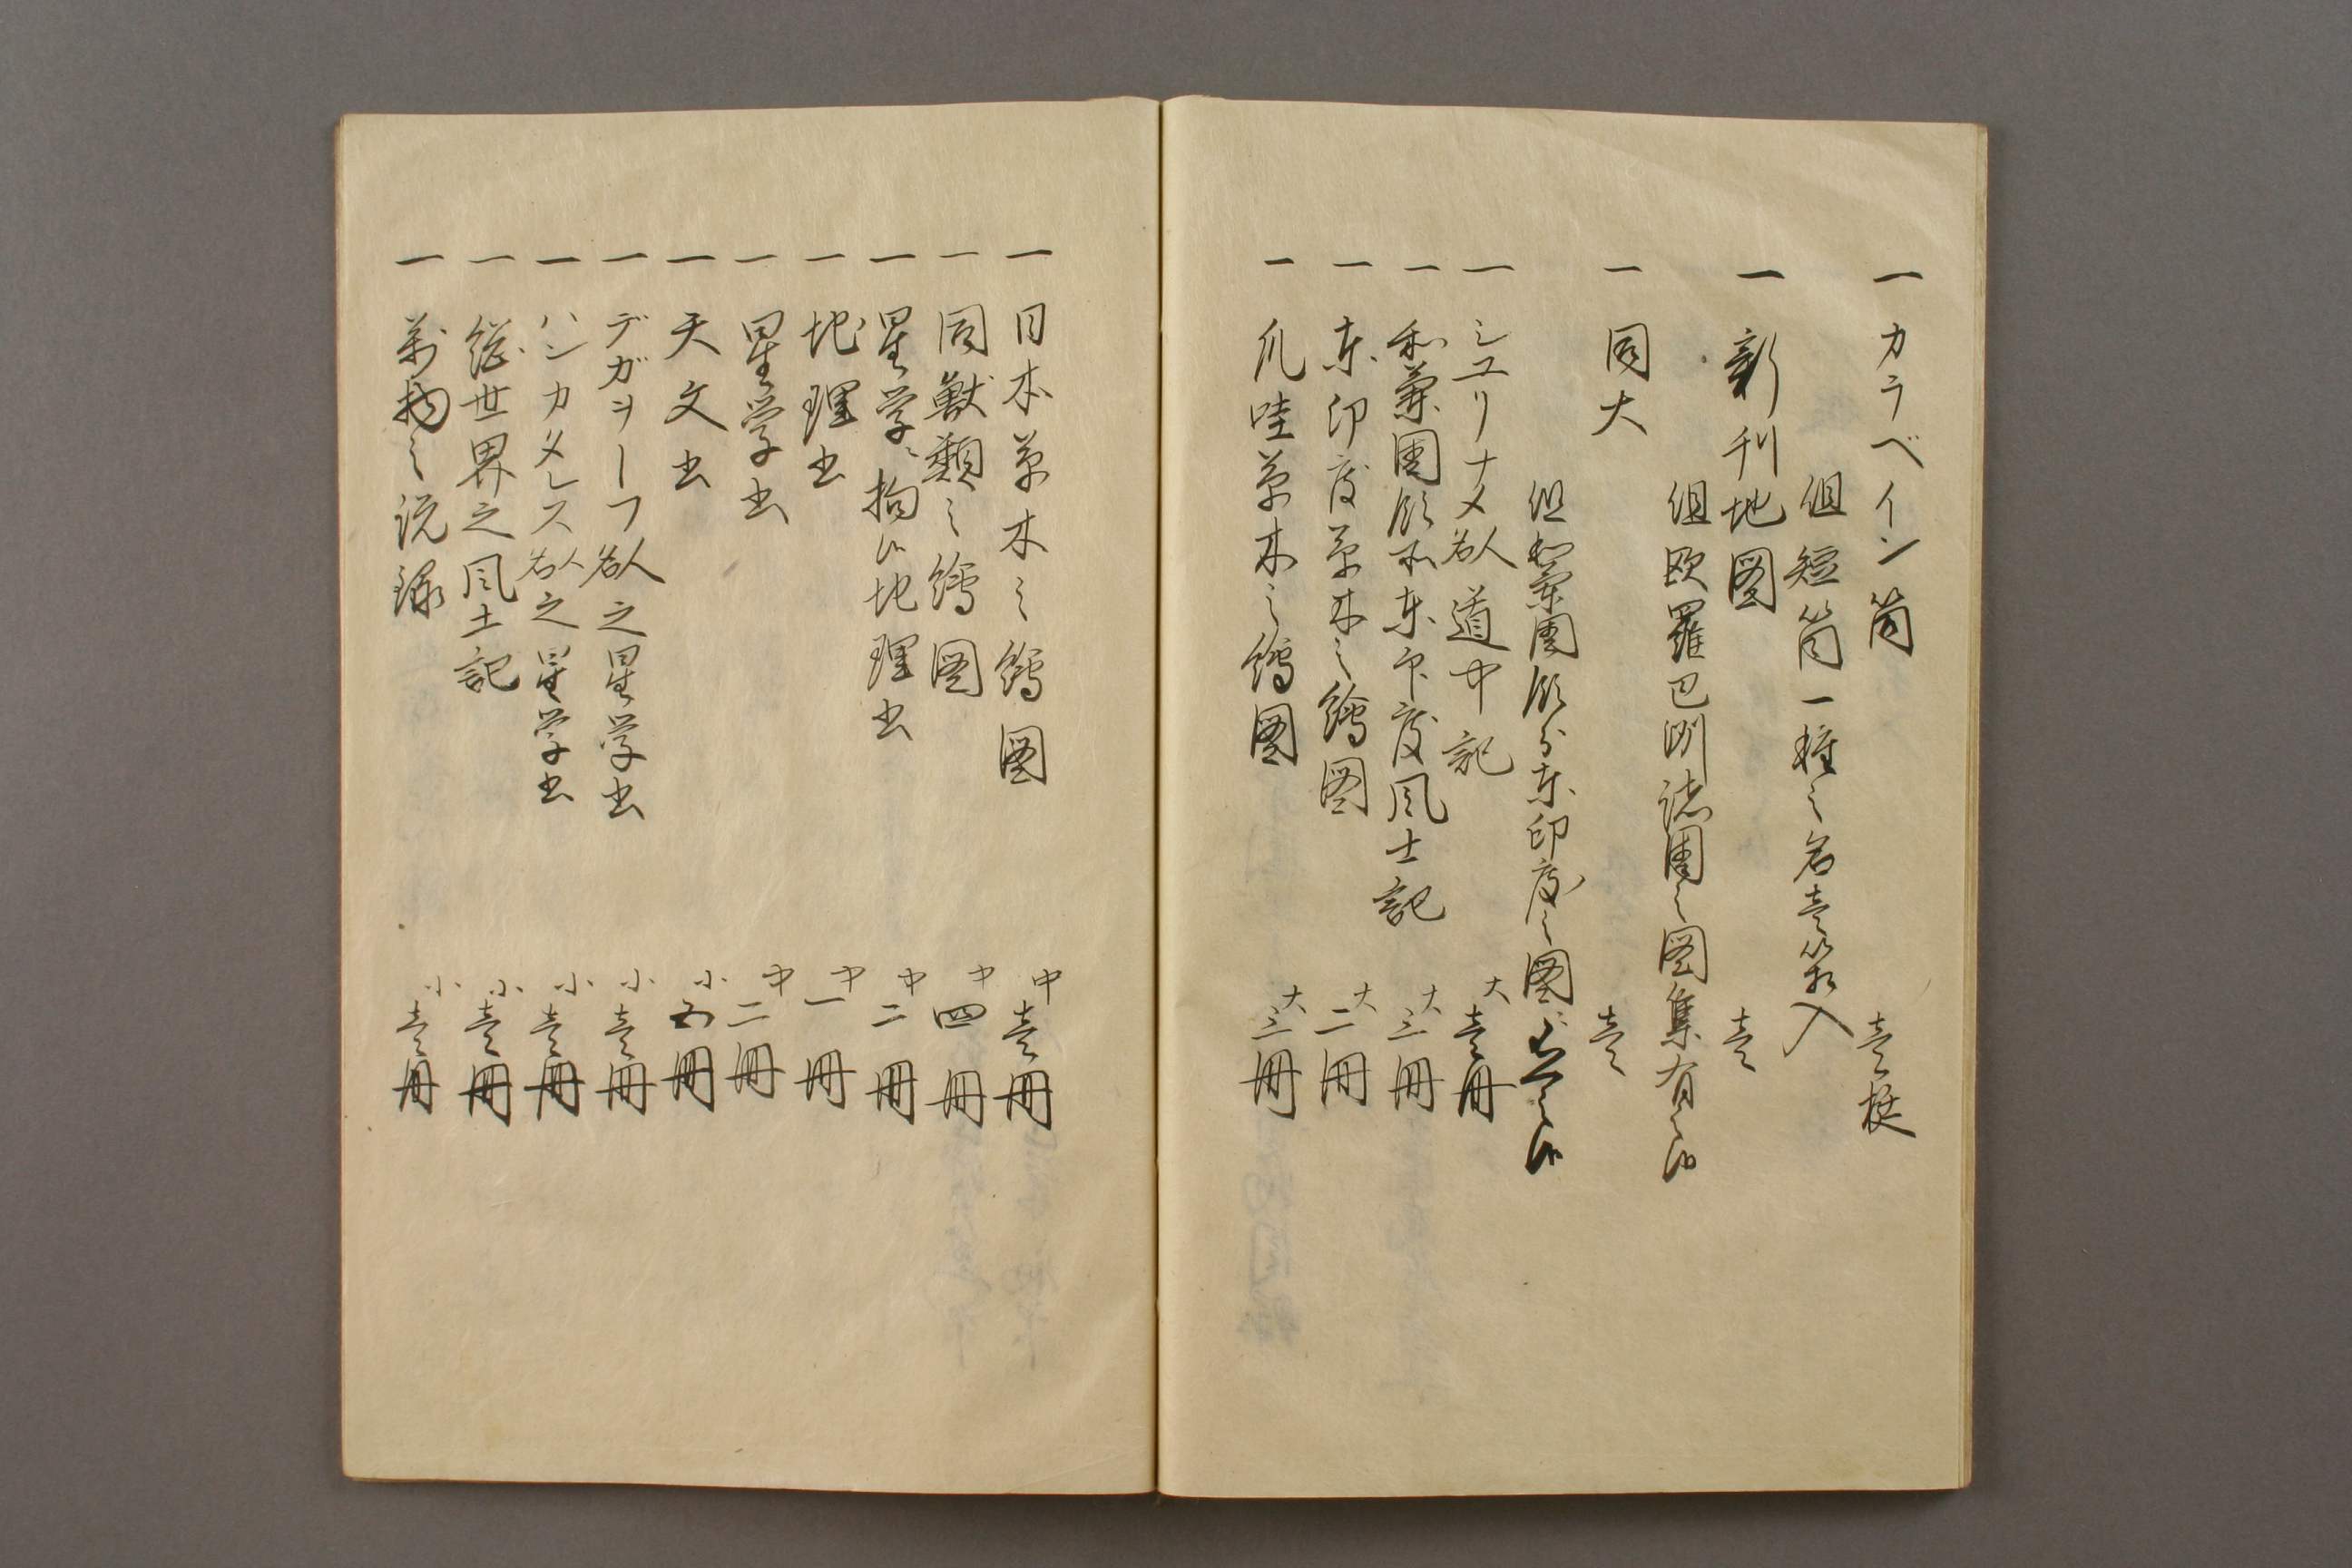 一 カラベイン筒 壱挺
但短筒一種之名壱箱入
一 新刊地図 壱
但欧羅巴洲諸国之図集有之候
一 同大 壱
但和蘭国領分東印度之図ニ有之候
一 シユリナメ 人名 道中記 大 壱冊
一 和蘭国領不東印度風土記 大 三冊
一 東印度草木之繪図 大 二冊
一 爪哇草木之繪図 大 三冊
一 日本草木之繪図 中 壱冊
一 同獣類之繪図 中 四冊
一 星学ニ拘候地理書 中 二冊
一 地理書 中 一冊
一 星学書 中 二冊
一 天文書 小 五冊
一 デガラーフ 人名 之星学書 小 壱冊
一 ハンカメレス 人名 之星学書 小 壱冊
一 総世界之風土記 小 壱冊
一 萬物之説録 小 壱冊